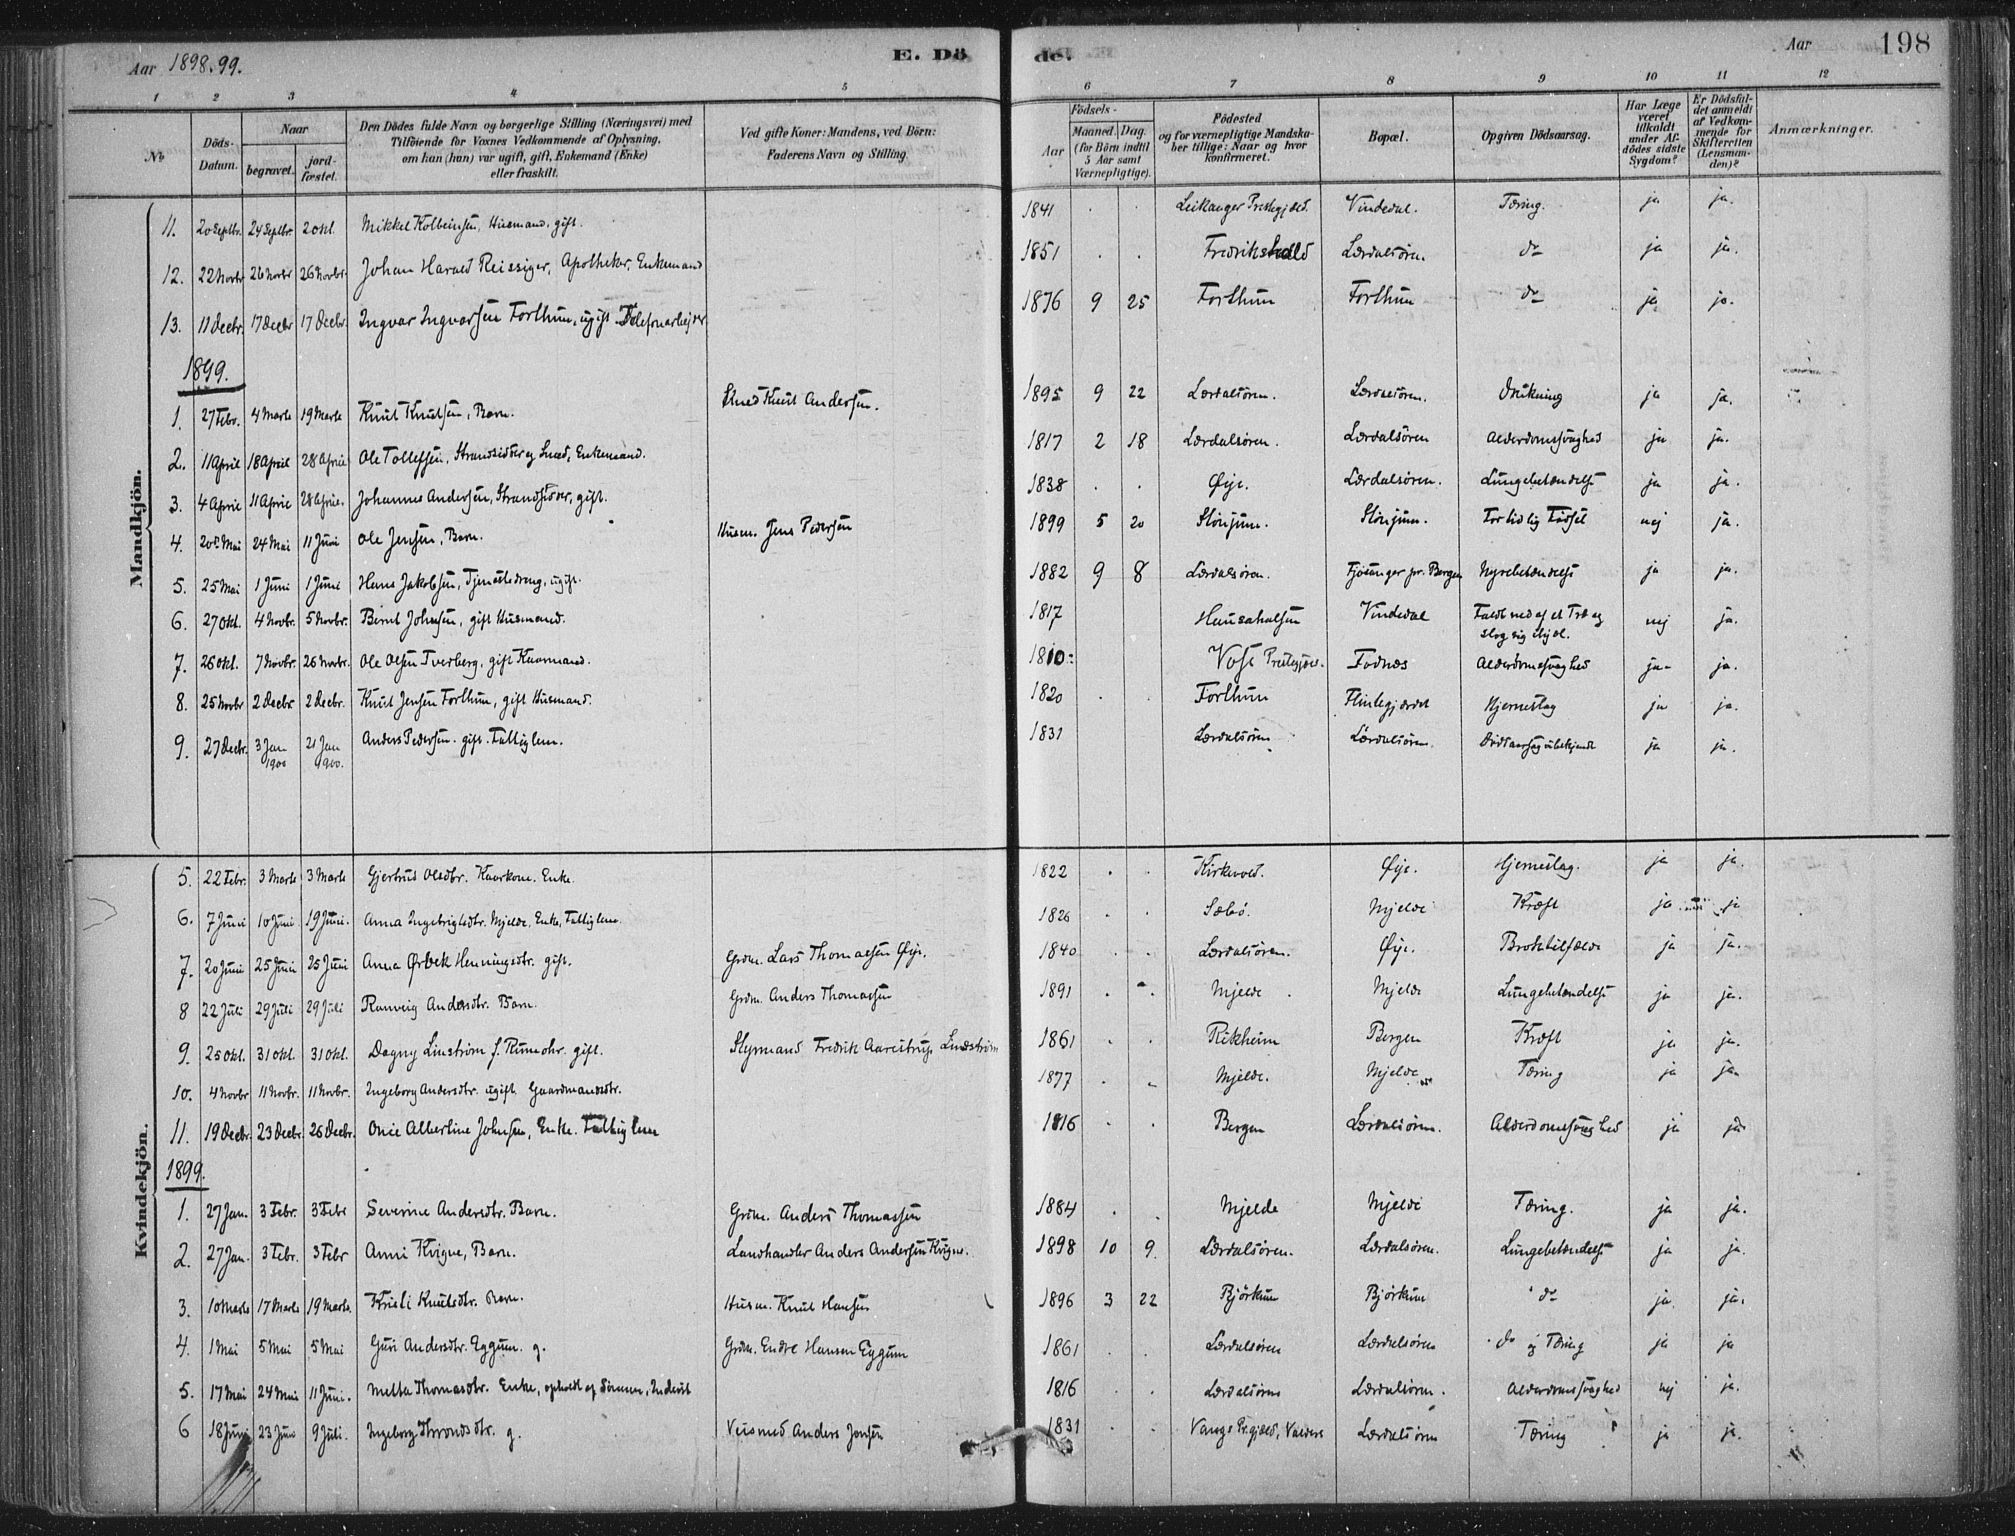 Aar 1898.99.
E. Döde.
Aar 198
1 2 3 4 5 6 7 8 9 10 11 12
No
Döds-Datum.
Naar
begravet.
jord-fæstet.
Den Dödes fulde Navn og borgerlige Stilling (Næringsvei) med
Tilföiende for Voxnes Vedkommende af Oplysning,
om hun (han) var ugift, gift, Enkemand (Enke)
eller fraskilt.
Ved gifte Koner: Mandens, ved Börn:
Faderens Navn og Stilling
Födsels-
Aar
Maaned. Dag.
(for Börn indtil
5 Aar samt
Værnepligtige).
Födested
og for værnepligtige Mandska-
ber tillige: Naar og hvor
konfirmeret.
Bopæl.
Opgiven Dödsaarsag.
Har Læge
været
tilkaldt
under Af-
dödes sidste
Sygdom?
Er Dödsfal-
det anmeldt
af Vedkom-
mende for
Skifteretten
(Lensman-
den)?
Anmærkninger.
Mandkjön.
11. 20 Septbr. 24 Septbr. 2 okt. Mikkel Kolbeinsen, Husmand, gift. 1841 Leikanger Prestegjæld. Vindedal. Tæring. ja ja.
12. 22 Novbr 26 Novbr 26 Novbr. Johan Harald Reissiger, Apotheker, Enkemand 1851 Fredrikshald Lærdalsøren. do ja ja.
13. 11 Decbr. 17 Decbr 17 Decbr. Ingvar Ingvarsen Forthun, ugift Telefonarbejder 1876 9 25 Forthun Forthun do ja ja.
1899.
1. 27 Febr. 4 Marts 19 Marts Knut Knutsen, Barn. Smed Knut Andersen. 1895 9 22 Lærdalsøren. Lærdalsøren. Drukning ja ja.
2. 11 April 18 April 28 April Ole Tollefsen, Strandsidder og Smed, Enkemand. 1817 2 18 Lærdalsøren. Lærdalsören Alderdomssvaghed ja ja.
3. 4 April 11 April 28 April. Johannes Andersen, Strandsidder, gift. 1838 Øye. Lærdalsøren. Lungebetændelse ja ja.
4. 20 Mai 24 Mai 11 Juni Ole Jensen, Barn. Husm. Jens Pedersen 1899 5 20 Stönjum. Stönjum. For tidlig Födsel nej ja.
5. 25 Mai 1 Juni 1 Juni Hans Jakobsen, Tjenestedreng, ugift. 1882 9 8 Lærdalsøren. Fjösanger pr. Bergen Nyrebetændelse ja ja.
6. 27 Okt. 4 Novbr. 5 Novbr. Bernt Johnsen, gift Husmand. 1817 Vindedal Faldt ned af et Træ og
slog sig ihjel. nej ja.
7. 26 okt. 7 Novbr. 26 Novbr. Ole Olsen Tverberg, gift Kaarmand. 1810 Vos Prestegjæld. Fodnæs Alderdomssvaghed ja ja.
8. 25 Novbr 2 Decbr. 2 Decbr. Knut Jensen Forthun, gift Husmand. 1820 Forthun Hjerneslag ja ja.
9. 27 Decbr. 3 Jan 1900 21 Jan 1900. Anders Pedersen. gift. Fattiglem. 1831 Lærdalsøren Lærdalsøren. Dødsaarsag ubekjendt ja ja.
Kvindekjön.
5. 22 Febr. 3 Marts 3 Marts Gjertrud Olsdtr. Kaarkone. Enke. 1822 Kirkevold. Øye. Hjerneslag. ja ja.
6. 7 Juni 10 Juni 19 Juni. Anna Ingebrigtsdtr. Mjelde. Enke, Fattiglem. 1826 Sæbö. Mjelde Kræft ja ja
7. 20 Juni 25 Juni 25 Juni Anna Ørbek Henningsdtr. gift. Grdm. Lars Thomassen Øye. 1840 Lærdalsøren. Øye. Broktilfælde ja ja.
8 22 Juli 29 Juli 29 Juli Ranveig Andersdtr. Barn. Grdm. Anders Thomassen 1891 Mjelde Mjelde Lungebetændelse ja ja.
9. 25 Okt. 31 Okt. 31 Okt. Dagny Linstrøm f. Rumohr. gift. Styrmand Fredrik Aarestrup Lindstrøm 1861 Rikheim Bergen Kræft ja ja.
10. 4 Novbr 11 Novbr. 11 Novbr. Ingeborg Andersdtr. ugift Gaardmandsdtr. 1877 Mjelde. Mjelde Tæring ja ja
11. 19 Decbr. 23 Decbr. 26 Decbr. Albertine Johnsen, Enke. Fattiglem 1816 Bergen Lærdalsören. Alderdomssvaghed ja ja
1899.
1. 27 Jan. 3 Febr. 3 Febr Severine Andersdtr. Barn. Grdm. Anders Thomassen 1884 Mjelde Mjelde Tæring. ja ja.
2. 27 Jan. 3 Febr. 3 Febr Anni Kvigne, Barn. Landhandler Anders Andersen Kvigne. 1898 10 9. Lærdalsören. Lærdalsören. Lungebetændelse ja ja.
3. 10 Marts 17 Marts 19 Marts. Kristi Knutsdtr. Barn. Husm. Knut Hansen 1896 3 22 Björkum Björkum do ja ja.
4. 1 Mai 5 Mai 5 Mai Guri Andersdtr. Eggum. g. Grdm. Endre Hansen Eggum 1861 Lærdalsören Lærdalsören do og Tæring ja ja
5. 17 Mai 24 Mai 11 Juni. Metta Thomasdtr. Enke, opholdt af Sönnen, Inderst 1816 Lærdalsören Lærdalsören. Alderdomssvaghed nej ja.
6 18 Juni 23 Juni 9 Juli. Ingeborg Throndsdtr. g. Anders Jensen 1831 Vangs Prgjæld, Valders Lærdalsören Tæring ja ja.